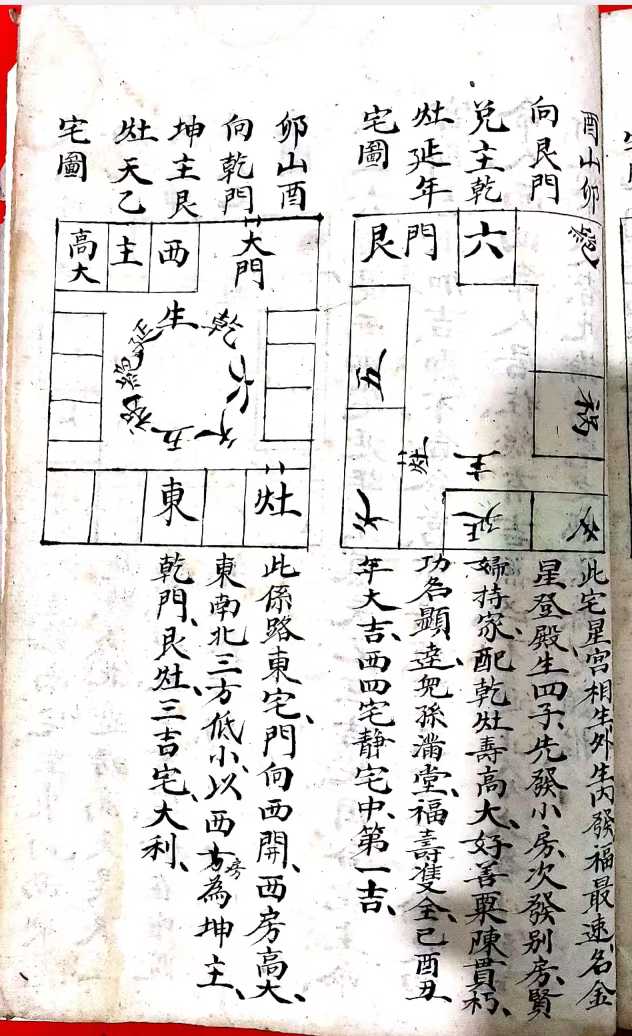 酉山卯
向艮門
兌主乾
灶延年
宅圖
艮門
六
絕
五
禍
灶
主
延
此宅星宮相生外生內發福最速、名金
星登殿生四子、先發小房、次發別房、賢
婦持家、配乾灶壽高大、好善粟陳貫朽、
功名顯達、兒孫滿堂、福壽雙全、巳酉丑
年大吉、西四宅靜宅中、第一吉、
卯山酉
向乾門
坤主艮
灶天乙
宅圖
大門
西
主
高大
生
延
絕
禍
五
天
六
東
灶
此係路東宅、門向西開、西房高大、
東南北三方低小、以西房為坤主、
乾門、艮灶、三吉宅、大利、